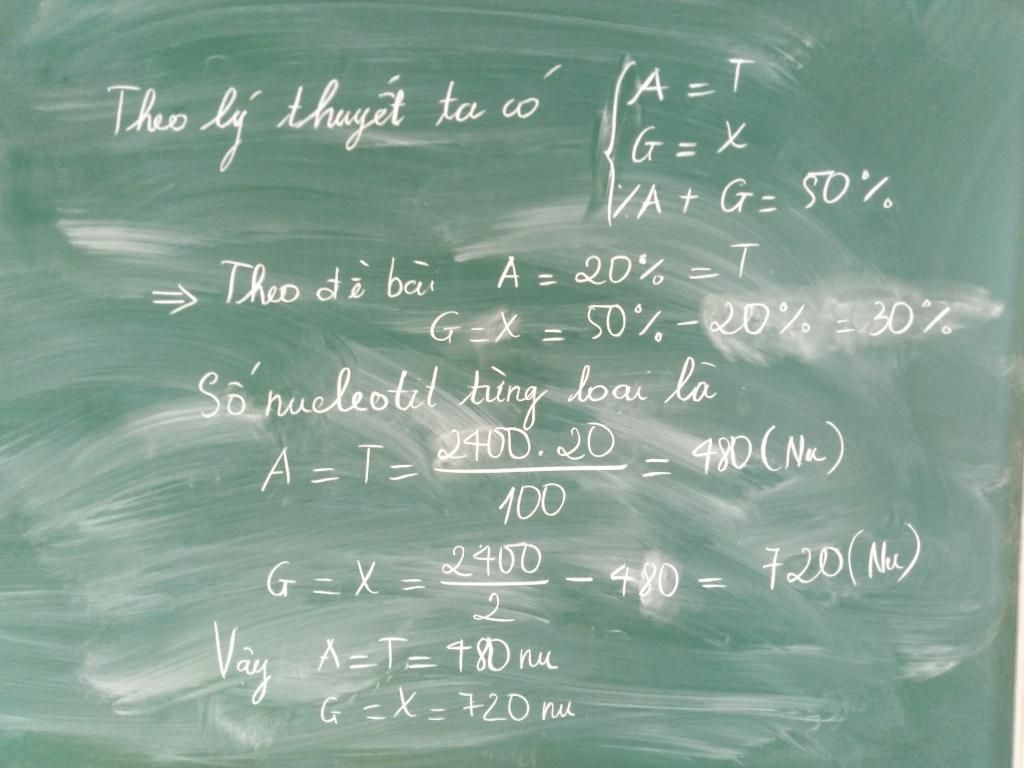 Theo lý thuyết ta có { A = T
G = X
%A + G = 50%
⇒ Theo đề bài A = 20% = T
G = X = 50% - 20% = 30%
Số nucleotit từng loại là
A = T = 2400.20/100 = 480 (Nu)
G = X = 2400/2 - 480 = 720 (Nu)
Vậy A = T = 480 nu
G = X = 720 nu